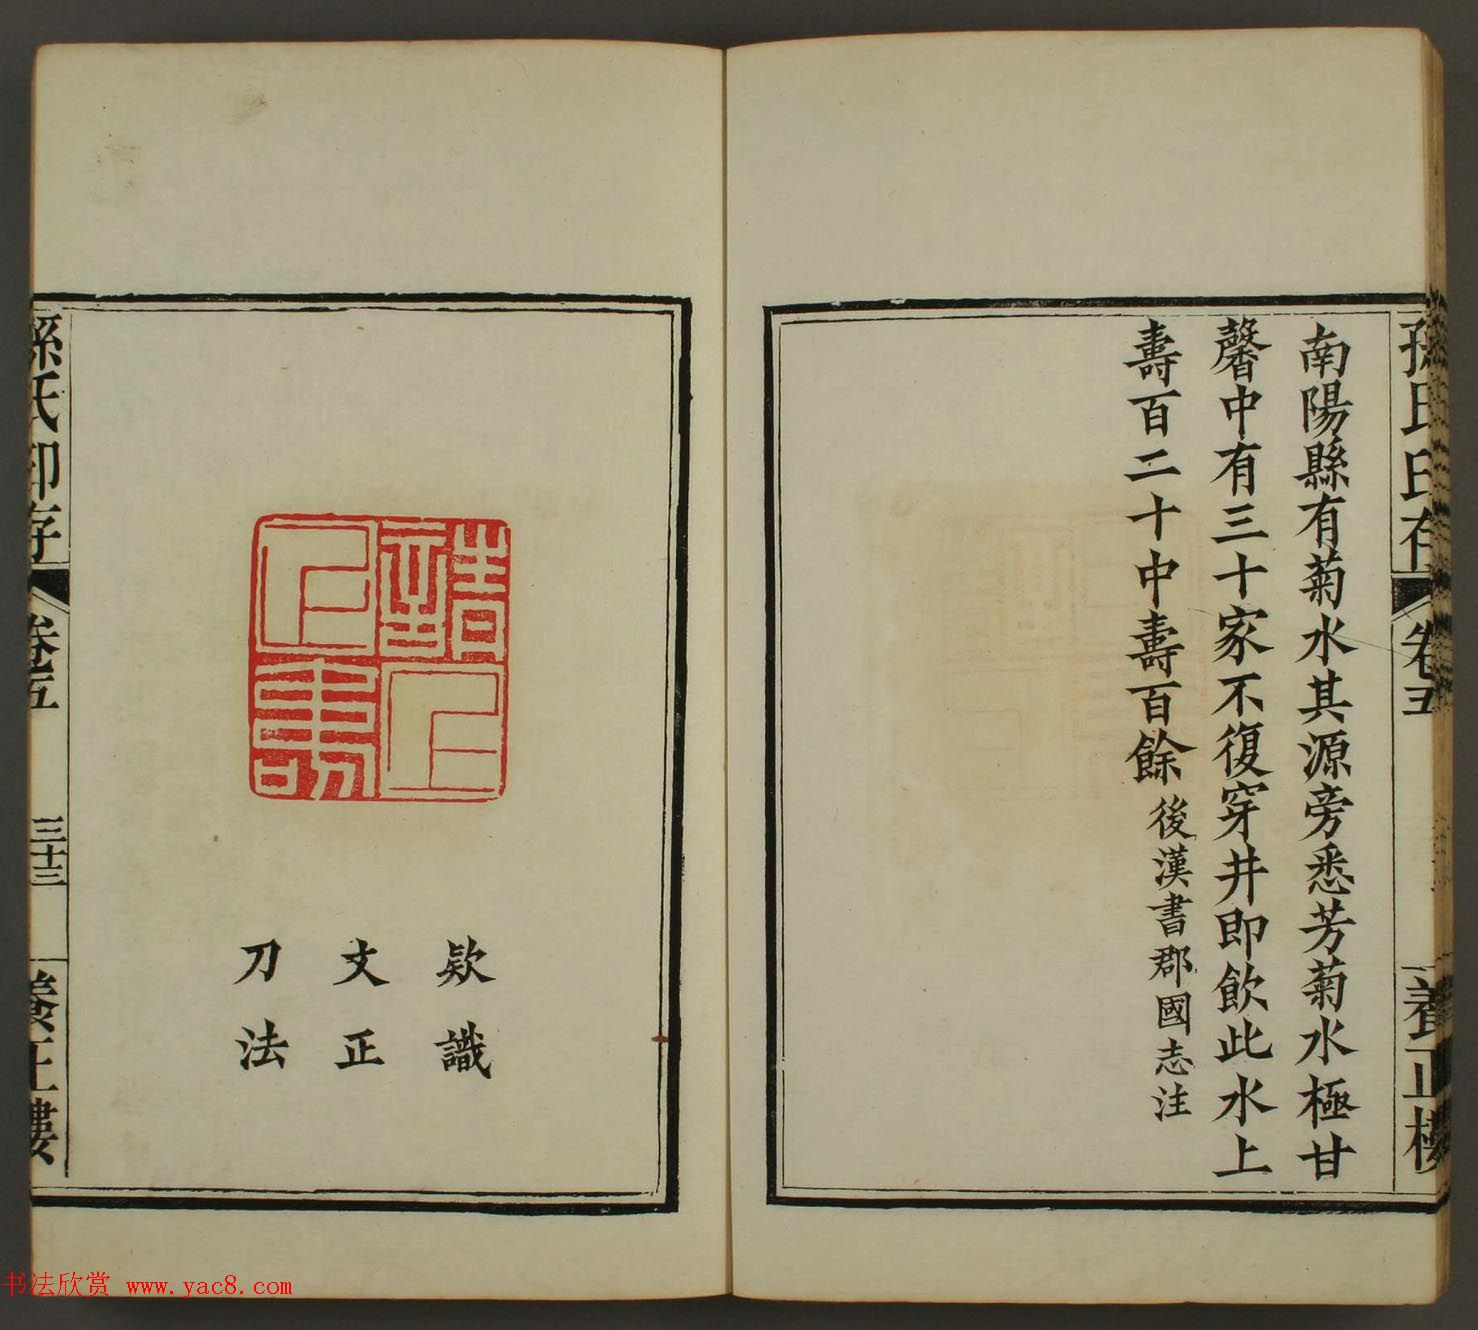 孫氏印存
卷五
養正樓
南陽縣有菊水其源旁悉芳菊水極甘
馨中有三十家不復穿井即飲此水上
壽百二十中壽百餘後漢書郡國志注
欵識
文正
刀法
孫氏印存
卷五
三十三
養正樓
书法欣赏 www.yac8.com